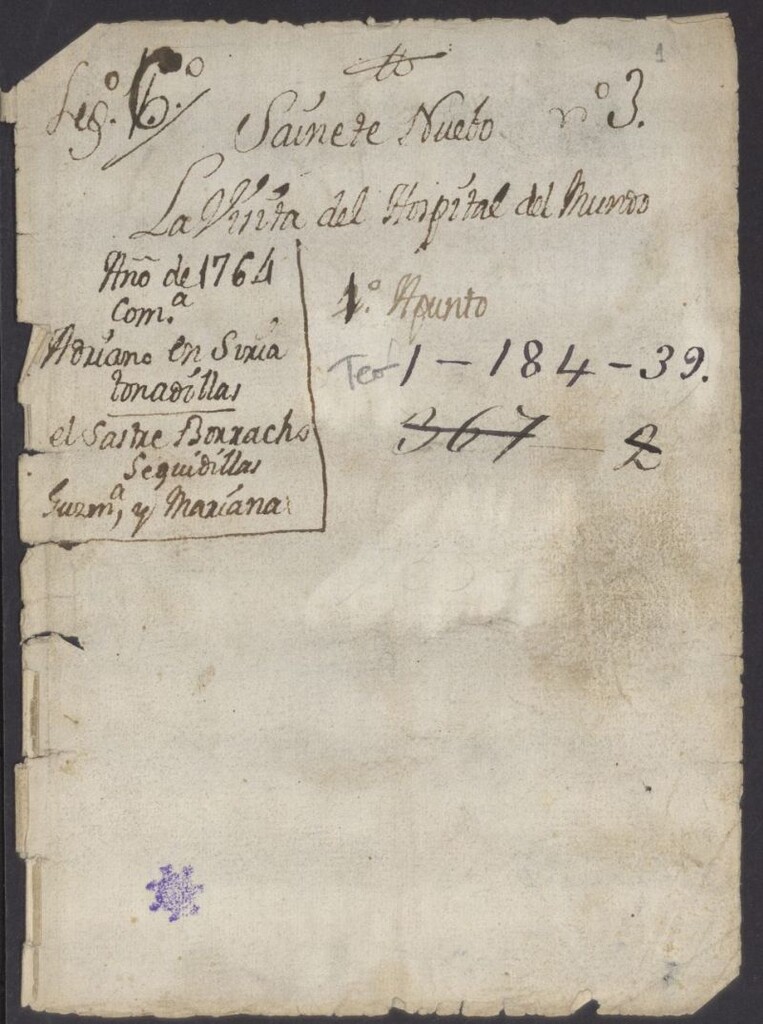 1
Leg.º 6.º
Saínete Nuebo nº 3.
La Visita del Hospital del Mundo
Año de 1764
Com.ª
Adriano en Siria
tonadillas
el Sastre Borracho
Seguidillas
Guzm.ª, y Mariana
1.º Apunto
Tea 1-184-39.
367 2